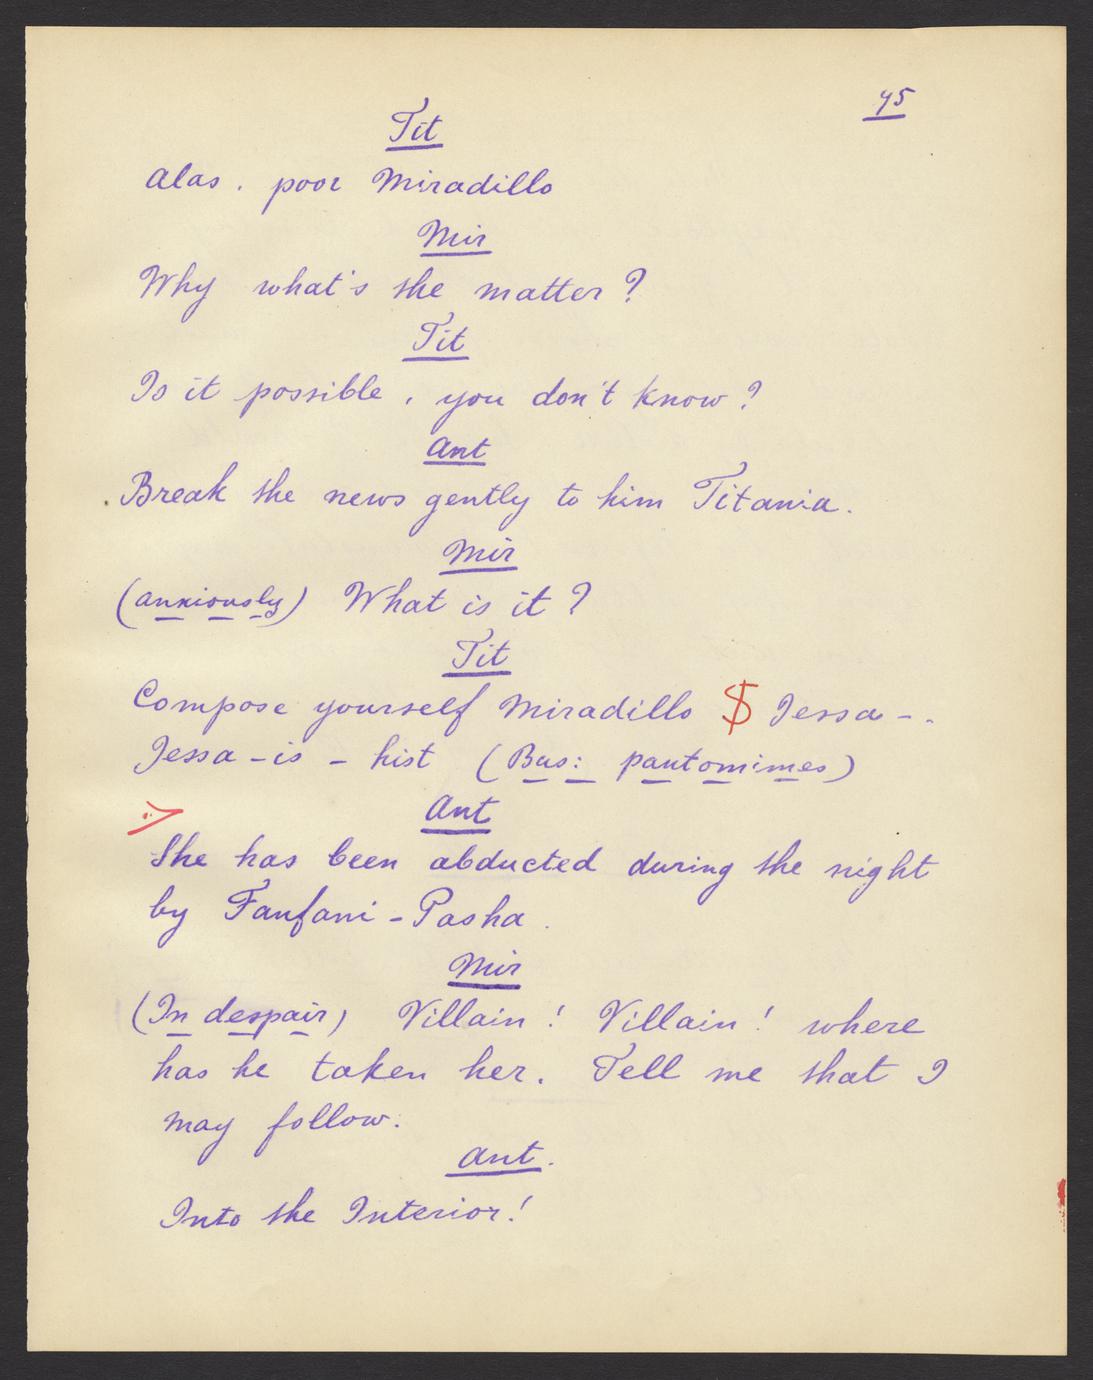 45
Tit
Alas. poor Miradillo
Mir
Why what's the matter?
Tit
Is it possible, you don't know?
Ant
Break the news gently to him Titania.
Mir
(anxiously) What is it?
Tit
Compose yourself Miradillo $ Jessa - .
Jessa - is - hist (Bas: pantomimes)
Ant
She has been abducted during the night
by Fanfani - Pasha.
Mir
(In despair) Villain! Villain! where
has he taken her. Tell me that I
may follow.
Ant.
Into the Interior!